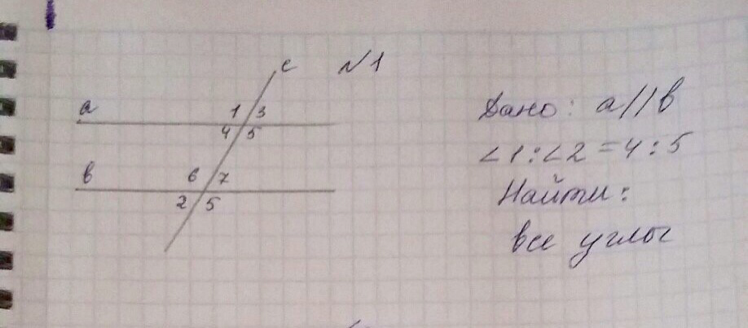 c
№1
a
1 3
4 5
Дано: a//b
∠1:∠2=4:5
b
6 7
2 5
Найти:
все углы